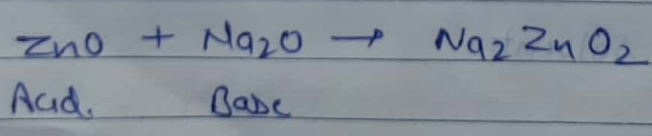 ZnO + Na2O → Na2ZnO2
Acid. Base